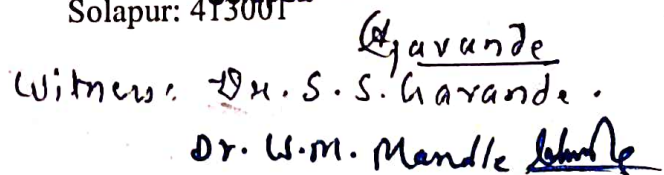 Solapur: 413001
Gavande
Witness: Dr. S. S. Gavande.
Dr. W. M. Mandle